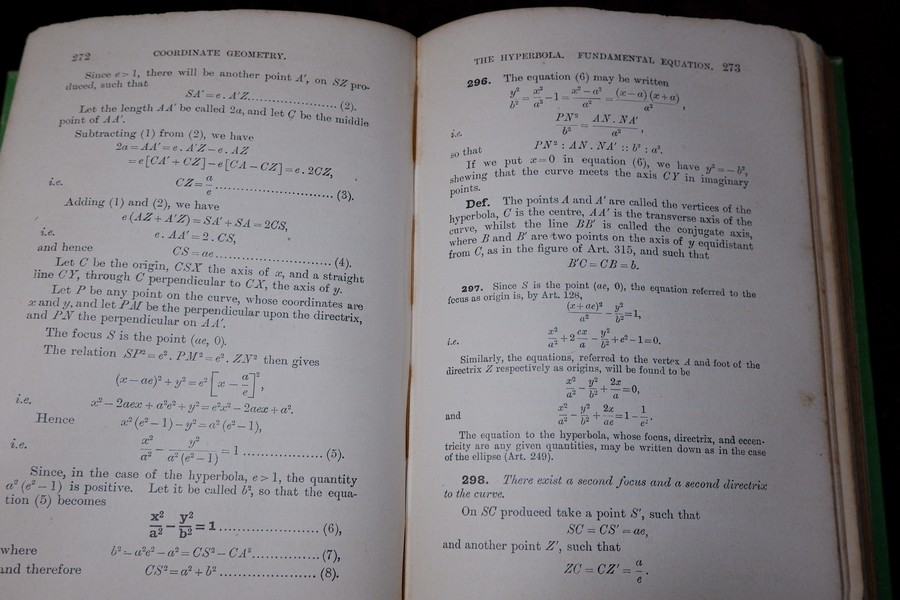 272 COORDINATE GEOMETRY.
Since e > 1, there will be another point A′, on SZ pro-
duced, such that
SA′ = e . A′Z..............................(2).
Let the length AA′ be called 2a, and let C be the middle
point of AA′.
Subtracting (1) from (2), we have
2a = AA′ = e . A′Z − e . AZ
= e [CA′ + CZ] − e [CA − CZ] = e . 2CZ,
i.e. CZ = a/e..............................(3).
Adding (1) and (2), we have
e (AZ + A′Z) = SA′ + SA = 2CS,
i.e. e . AA′ = 2 . CS,
and hence CS = ae..............................(4).
Let C be the origin, CSX the axis of x, and a straight
line CY, through C perpendicular to CX, the axis of y.
Let P be any point on the curve, whose coordinates are
x and y, and let PM be the perpendicular upon the directrix,
and PN the perpendicular on AA′.
The focus S is the point (ae, 0).
The relation SP² = e² . PM² = e² . ZN² then gives
(x − ae)² + y² = e² [x − a/e]²,
i.e. x² − 2aex + a²e² + y² = e²x² − 2aex + a².
Hence x² (e² − 1) − y² = a² (e² − 1),
i.e. x²/a² − y²/a² (e² − 1) = 1 ..................(5).
Since, in the case of the hyperbola, e > 1, the quantity
a² (e² − 1) is positive. Let it be called b², so that the equa-
tion (5) becomes
x²/a² − y²/b² = 1......................(6),
where b² = a²e² − a² = CS² − CA²...............(7),
and therefore CS² = a² + b² ......................(8).
THE HYPERBOLA. FUNDAMENTAL EQUATION. 273
296. The equation (6) may be written
y²/b² = x²/a² − 1 = x² − a²/a² = (x − a) (x + a)/a²,
i.e. PN²/b² = AN . NA′/a²,
so that PN² : AN . NA′ :: b² : a².
If we put x = 0 in equation (6), we have y² = − b²,
shewing that the curve meets the axis CY in imaginary
points.
Def. The points A and A′ are called the vertices of the
hyperbola, C is the centre, AA′ is the transverse axis of the
curve, whilst the line BB′ is called the conjugate axis,
where B and B′ are two points on the axis of y equidistant
from C, as in the figure of Art. 315, and such that
B′C = CB = b.
297. Since S is the point (ae, 0), the equation referred to the
focus as origin is, by Art. 128,
(x + ae)²/a² − y²/b² = 1,
i.e. x²/a² + 2 ex/a − y²/b² + e² − 1 = 0.
Similarly, the equations, referred to the vertex A and foot of the
directrix Z respectively as origins, will be found to be
x²/a² − y²/b² + 2x/a = 0,
and x²/a² − y²/b² + 2x/ae = 1 − 1/e².
The equation to the hyperbola, whose focus, directrix, and eccen-
tricity are any given quantities, may be written down as in the case
of the ellipse (Art. 249).
298. There exist a second focus and a second directrix
to the curve.
On SC produced take a point S′, such that
SC = CS′ = ae,
and another point Z′, such that
ZC = CZ′ = a/e.